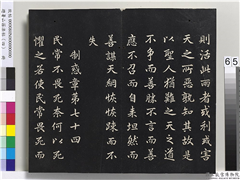 則活此兩者或利或害
天之所惡孰知其故是
以聖人猶難之天之道
不爭而善勝不言而善
應不召而自来坦然而
善謀天網恢恢踈而不
失
制惑章第七十四
民常不畏死柰何以死
懼之若使民常畏死而